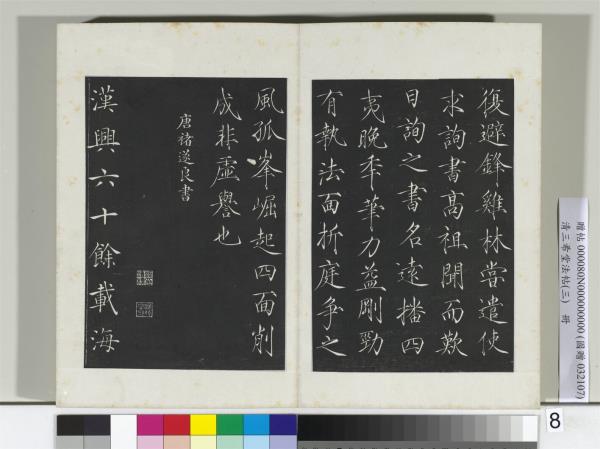 復避鋒雞林嘗遣使
求詢書高祖聞而歎
曰詢之書名遠播四
夷晚年筆力益剛勁
有執法面折庭爭之
風孤峯崛起四面削
成非虛譽也
唐褚遂良書
漢興六十餘載海
贈帖 000080N000000000 (國贈 032107)
清三希堂法帖(三) 冊
8